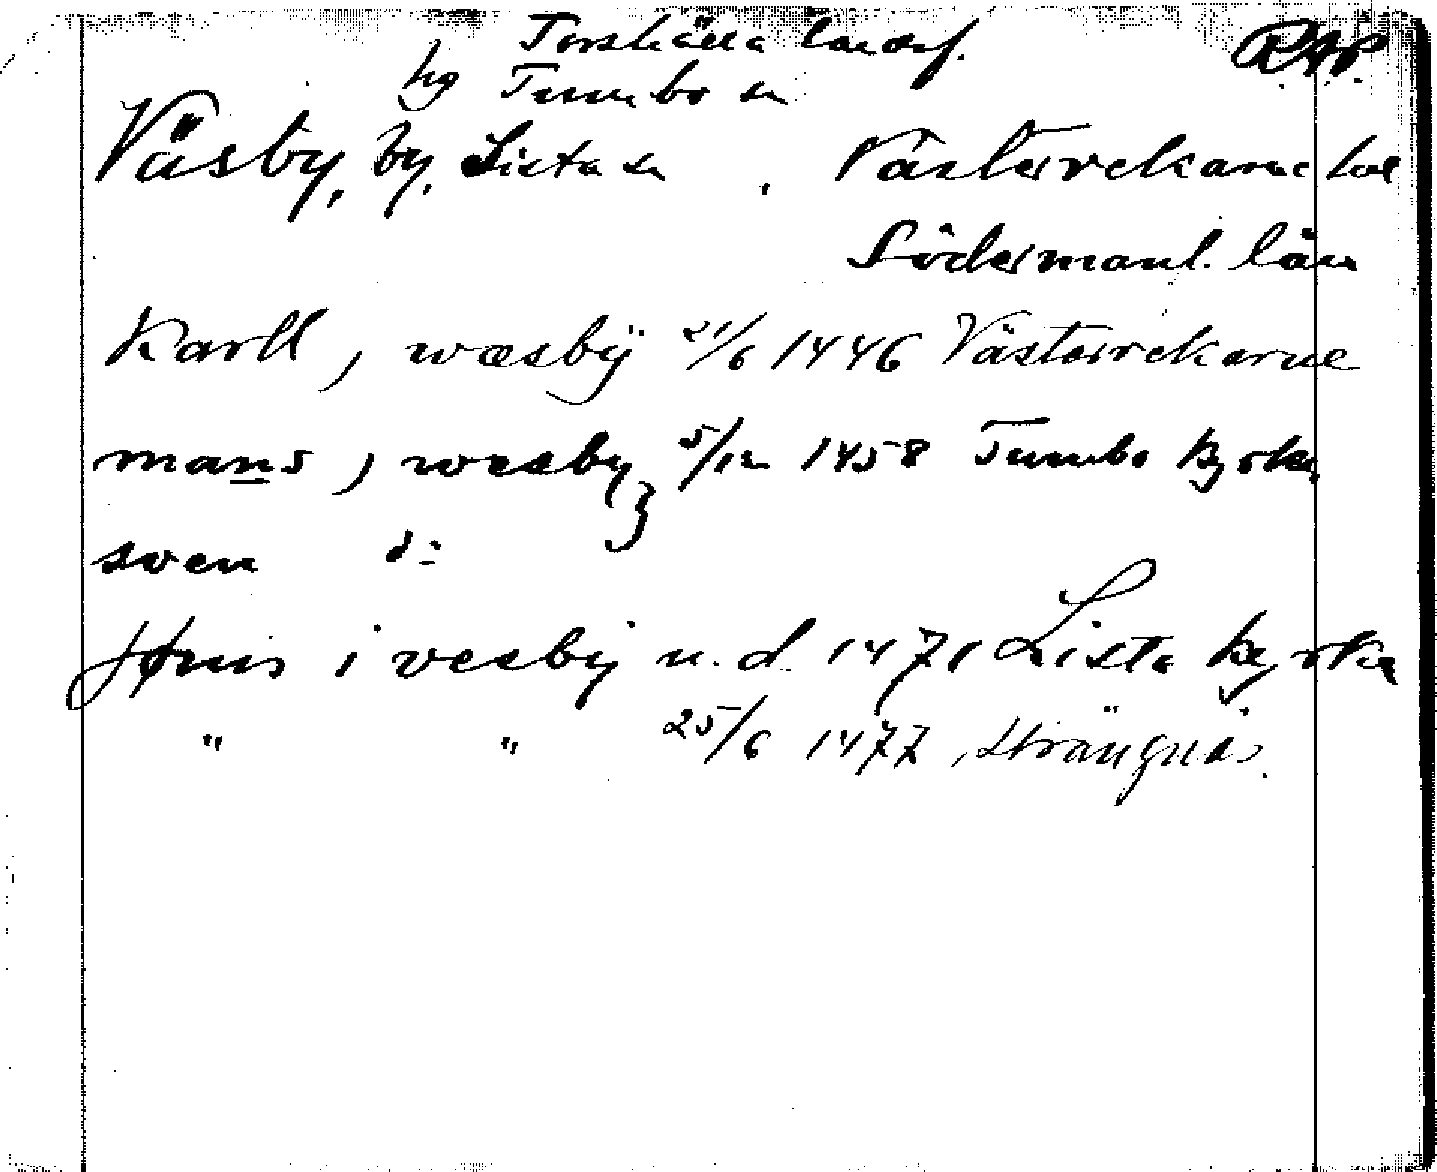 Torshälla landsf. RAP.
hg Tumbo sn
Väsby, by, Lista sn, Västerrekarne hd
Södermanl. län
Karll j wæsbÿ 21/6 1446 Västerrekarne
mans j wesby 5/12 1458 Tumbo kyrka
sven d:
Jønis i vesbÿ u.d. 1471 Lista kyrka
" " 25/6 1477 Strängnäs.